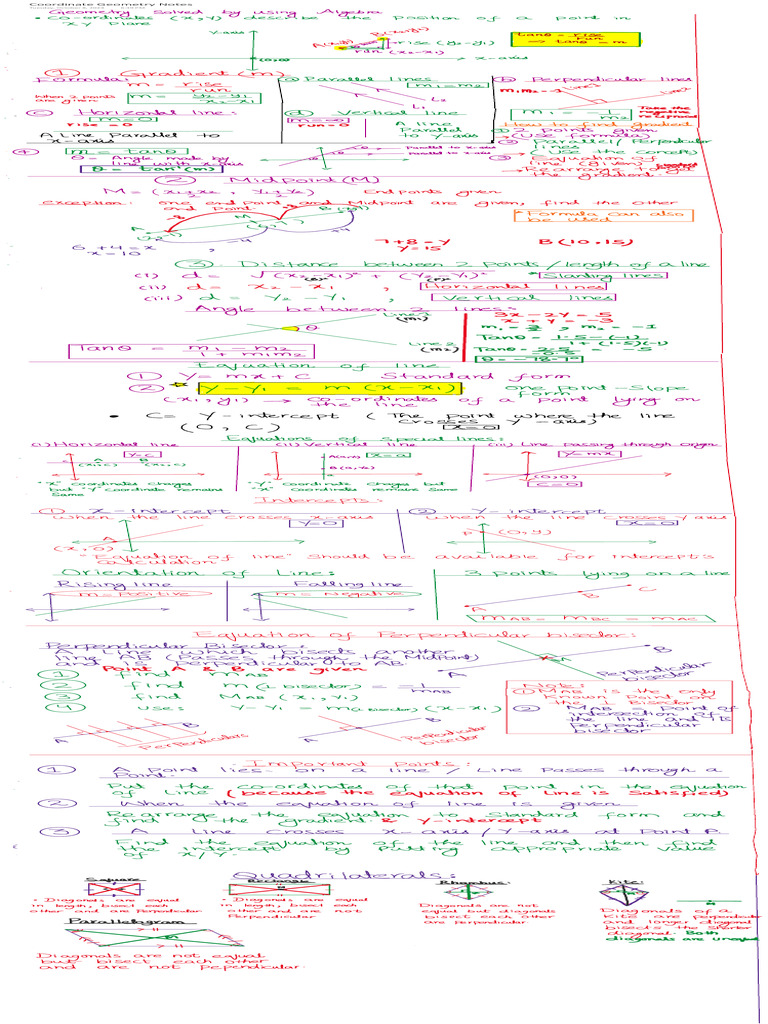 Coordinate Geometry Notes
Geometry Solved by using Algebra
• Co-ordinates (x,y) describe the Position of a point in
xy plane
Y-axis
rise (y₂-y₁)
run (x₂-x₁)
(0,0)
x-axis
Tanθ = rise/run
→ tanθ = m
① Gradient (m)
Formula:
m = rise/run
When 2 points are given
m = y₂-y₁/x₂-x₁
(a) Parallel lines
m₁ = m₂
L₂
L₁
(b) Perpendicular lines
m₁m₂ = -1
Line 1
Line 2
m₁ = -1/m₂
Take the negative reciprocal
(c) Horizontal line:
m=0
rise
A Line Parallel to
x-axis
(d) Vertical line
m=∞
run=0
A line
Parallel
to Y-axis
How to find gradient
① 2 Points given
(use formula)
② Parallel/Perpendicular
lines
(use the concept)
③ Equation of
line (given)
→ Rearrange to get
the gradient
④ m = tanθ
θ = Angle made by
line with x-axis
θ = tan⁻¹(m)
Parallel to x-axis
Parallel to x-axis
② Midpoint (M)
M = (x₁+x₂/2 , y₁+y₂/2)
End points given
exception: one end point and Midpoint are given, find the other
end Point.
* Formula can also
be used
6+4=x
x=10
,
7+8=y
y=15
B(10,15)
③ - Distance between 2 Points/length of a line
(i) d = √(x₂-x₁)² + (y₂-y₁)²
* Slanting lines
(ii) d = x₂ - x₁ , Horizontal lines
(iii) d = y₂ - y₁ , Vertical lines
Angle between 2 lines:
Line 1
(m₁)
θ
Line 2
(m₂)
Tanθ = m₁ - m₂/1 + m₁m₂
3x-2y = 5
x+y = -3
m₁ = 3/2 , m₂ = -1
Tanθ = 1.5-(-1)/1+(1.5)(-1)
Tanθ = 2.5/-0.5 = -5
Equation of line
① y = mx + c Standard form
② y-y₁ = m(x-x₁) one point-slope
form
(x₁,y₁) → Co-ordinates of a point lying on
the line
• C = Y-intercept (The point where the line
crosses y-axis)
(0, C) x=0
Equations of special lines:
(i) Horizontal line
y=c
A
B
"X" coordinates changes
but "Y" coordinate remains
same
(ii) Vertical line
x=a
"Y" coordinates changes but
"X" coordinate remains same
(iii) Line passing through Origin
y=mx
(0,0)
C=0
Intercepts:
① X-intercept
When the line crosses x-axis
y=0
A
(x,0)
② Y-intercept
When the line crosses y axis
x=0
P
(0,y)
"Equation of line" should be available for Intercepts
calculation
Orientation of Line:
Rising line
m = Positive
Falling line
m = Negative
3 Points lying on a line
A
B
C
mAB = mBC = mAC
Equation of Perpendicular bisector:
Perpendicular Bisector:
A Line which bisects another
line AB (Passes through the Midpoint)
and is Perpendicular to AB
Point A & B are given
A
B
M
Perpendicular
bisector
① find mAB
② find m(⊥ bisector) = -1/mAB
③ find MAB (x₁,y₁)
④ use: y-y₁ = m(⊥ bisector)(x-x₁)
Note:
① MAB is the only
Known Point on
the ⊥ Bisector
② MAB → Point of
intersection of
the line and its
Perpendicular
bisector
A
B
Perpendiculars
A
B
Perpendicular
bisector
Important Points:
① A point lies on a line / Line Passes through a
Point.
Put the co-ordinates of that point in the equation
of line (because the equation of line is Satisfied)
② When the equation of line is given
Rearrange the equation to Standard form and
find the gradient & y intercept
③ A Line Crosses x-axis/y-axis at Point P.
Find the equation of the line and then find
the intercept by putting appropriate value
of x/y.
Quadrilaterals:
Square
• Diagonals are equal
in length, bisect each
other and are Perpendicular
Rectangle
• Diagonals are equal
in length, bisect each
other and are not
Perpendicular
Rhombus:
Diagonals are not
equal but diagonals
bisect each other
are Perpendicular
Kite:
Diagonals of a
Kite are Perpendicular
and longer diagonal
bisects the Shorter
diagonal. Both
diagonals are unequal
Parallelogram
Diagonals are not equal
but bisect each other
and are not Perpendicular.